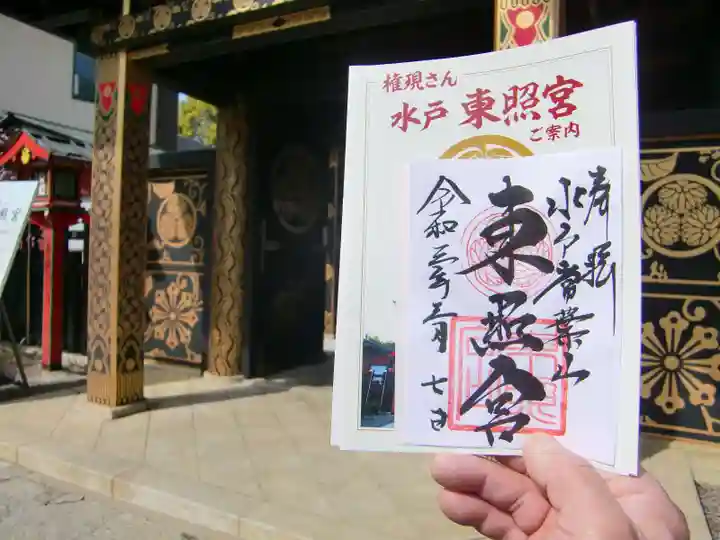 権現さん
水戸 東照宮
ご案内
奉拝
水戸常葉山
東照宮
令和
七日
照宮